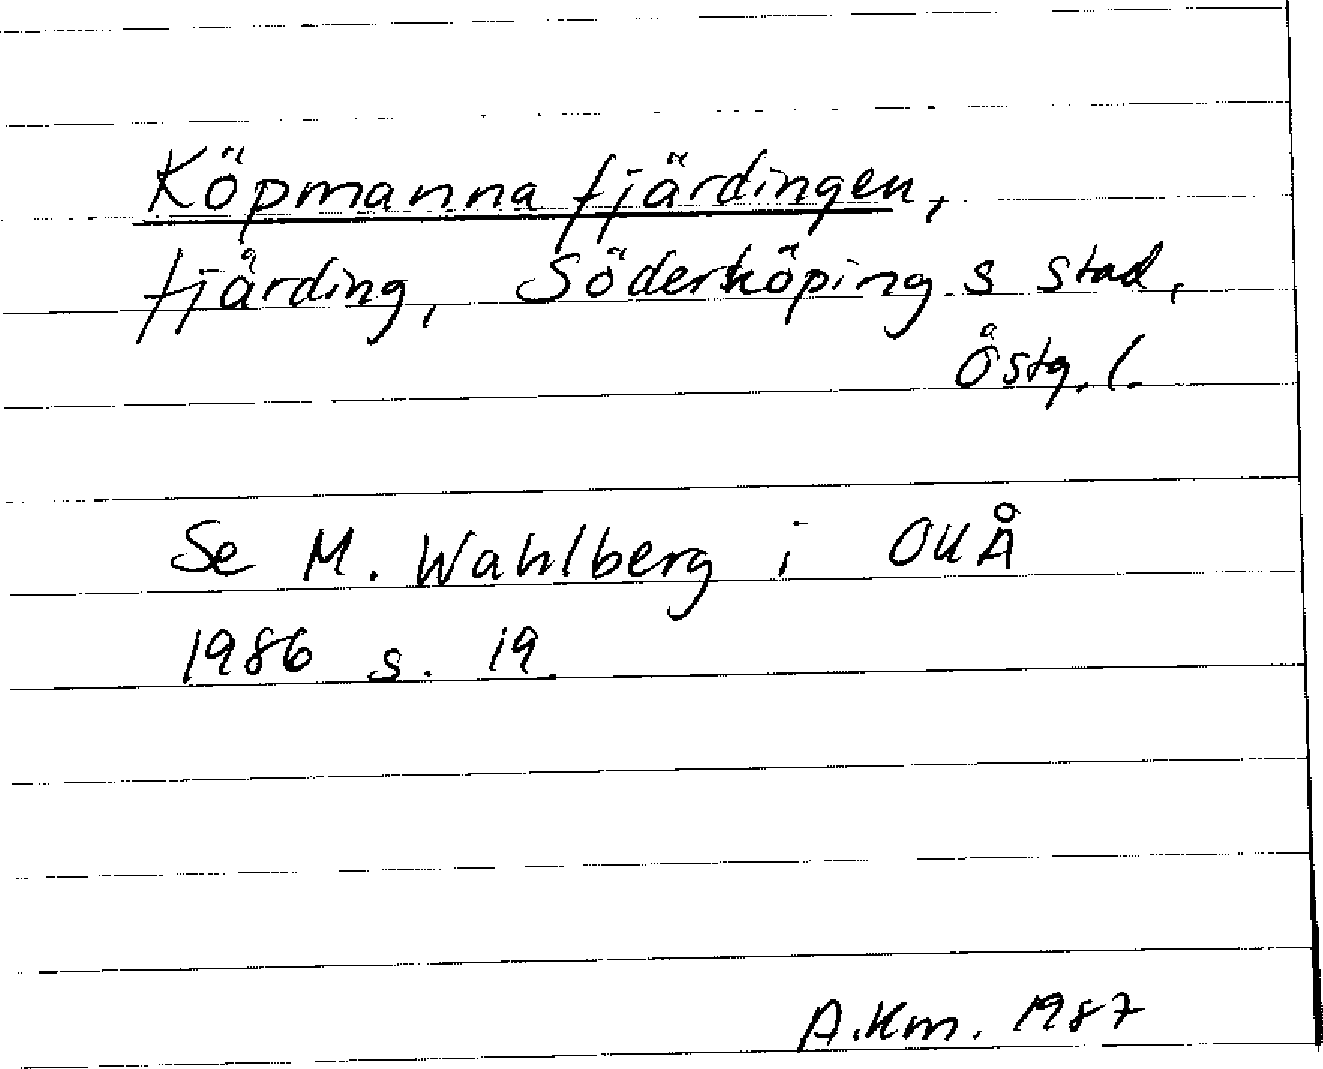 Köpmannafjärdingen,
fjärding, Söderköpings stad,
Östg. l.
Se M. Wahlberg i OUÅ
1986 s. 19.
A.Km. 1987